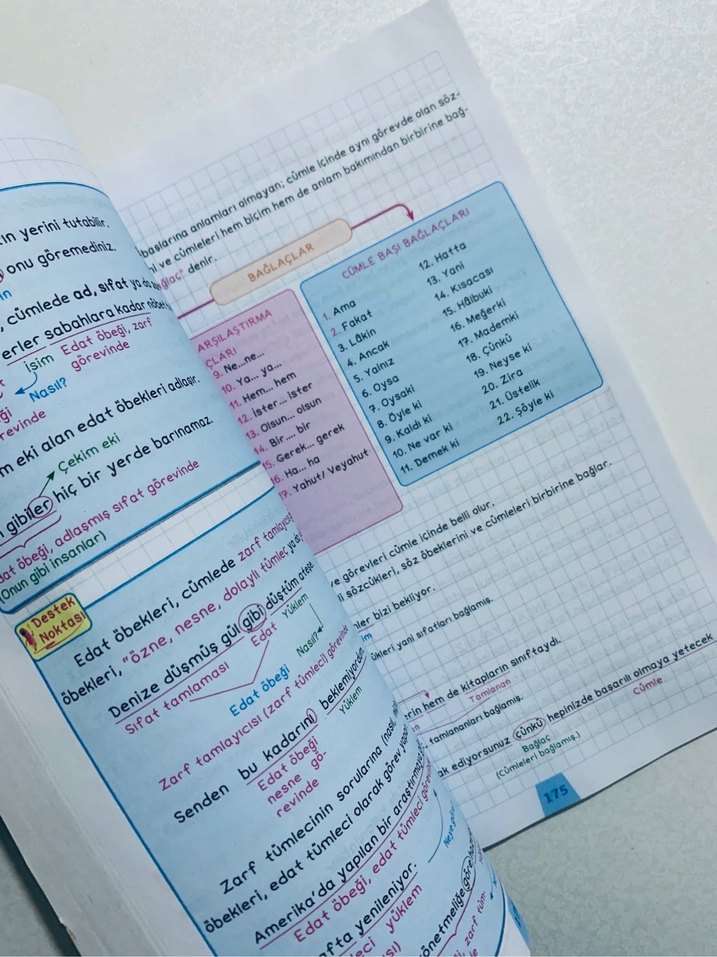 rın yerini tutabilir.
onu göremediniz.
, cümlede ad, sıfat ya da
erler sabahlara kadar
isim Edat öbeği, zarf
görevinde
Nasıl?
revinde
m eki alan edat öbekleri adlaşır.
Çekim eki
gibiler hiç bir yerde barınamaz.
dat öbeği, adlaşmış sıfat görevinde
(Onun gibi insanlar)
Destek
Noktası
Edat öbekleri, cümlede zarf tamlayıcısı
öbekleri, "özne, nesne, dolaylı tümleç,
Denize düşmüş gül gibi düştüm ateşe
Sıfat tamlaması Edat Yüklem
Edat öbeği Nasıl?
Zarf tamlayıcısı (zarf tümleci) görevinde
Senden bu kadarını beklemiyordum
Edat öbeği Yüklem
nesne gö-
revinde
Zarf tümlecinin sorularına
öbekleri, edat tümleci olarak görev
Amerika'da yapılan bir
Edat öbeği, edat tümleci
afta yenileniyor.
yüklem
yönetmeliğe göre
başlarına anlamları olmayan; cümle içinde aynı görevde olan söz-
ve cümleleri hem biçim hem de anlam bakımından birbirine bağ-
denir.
BAĞLAÇLAR
ARŞILAŞTIRMA
ÇLARI
9. Ne...ne...
10. Ya... ya...
11. Hem... hem
12. İster... ister
13. Olsun... olsun
14. Bir.... bir
15. Gerek... gerek
16. Ha... ha
17. Yahut/ Veyahut
CÜMLE BAŞI BAĞLAÇLARI
1. Ama
2. Fakat
3. Lâkin
4. Ancak
5. Yalnız
6. Oysa
7. Oysaki
8. Öyle ki
9. Kaldı ki
10. Ne var ki
11. Demek ki
12. Hatta
13. Yani
14. Kısacası
15. Hâlbuki
16. Meğerki
17. Mademki
18. Çünkü
19. Neyse ki
20. Zira
21. Üstelik
22. Şöyle ki
ve görevleri cümle içinde belli olur.
sözcükleri, söz öbeklerini ve cümleleri birbirine bağlar.
bizi bekliyor.
yani sıfatları bağlamış.
hem de kitapların sınıftaydı.
Tamlanan
tamlananları bağlamış.
ak ediyorsunuz çünkü hepinizde başarılı olmaya yetecek
Bağlaç Cümle
(Cümleleri bağlamış.)
175